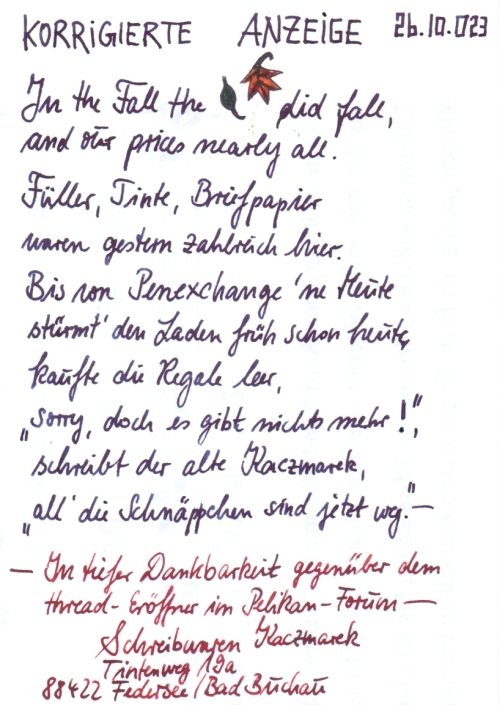 KORRIGIERTE ANZEIGE 26.10.023
In the Fall the did fall,
and our prices nearly all.
Füller, Tinte, Briefpapier
waren gestern zahlreich hier.
Bis von Penexchange 'ne Meute
stürmt' den Laden früh schon heute,
kaufte die Regale leer,
„Sorry, doch es gibt nichts mehr!",
schreibt der alte Kaczmarek,
„all' die Schnäppchen sind jetzt weg."—
— In tiefer Dankbarkeit gegenüber dem
thread-Eröffner im Pelikan-Forum —
Schreibwaren Kaczmarek
Tintenweg 19a
88422 Federsee/Bad Buchau